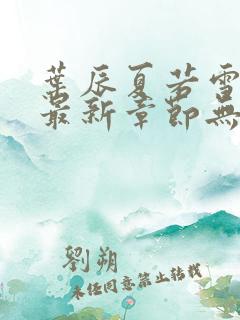 葉辰夏若雪
最新章節無
劉朔
未经同意禁止转载